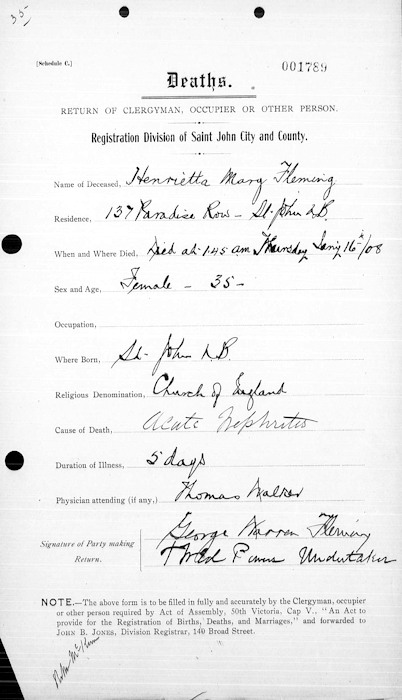 35
[Schedule C.]
001789
Deaths.
RETURN OF CLERGYMAN, OCCUPIER OR OTHER PERSON.
Registration Division of Saint John City and County.
Name of Deceased, Henrietta Mary Fleming
Residence, 137 Paradise Row - St. John N.B.
When and Where Died, Died at 1.45 am Thursday Jany 16th/08
Sex and Age, Female - 35 -
Occupation,
Where Born, St. John N.B.
Religious Denomination, Church of England
Cause of Death, Acute Nephritis
Duration of Illness, 5 days
Physician attending (if any,) Thomas Walker
Signature of Party making Return.
George Warren Fleming
Fred Powers Undertaker
NOTE.—The above form is to be filled in fully and accurately by the Clergyman, occupier
or other person required by Act of Assembly, 50th Victoria. Cap V., "An Act
to provide for the Registration of Births, Deaths, and Marriages," and forwarded to
JOHN B. JONES, Division Registrar, 140 Broad Street.